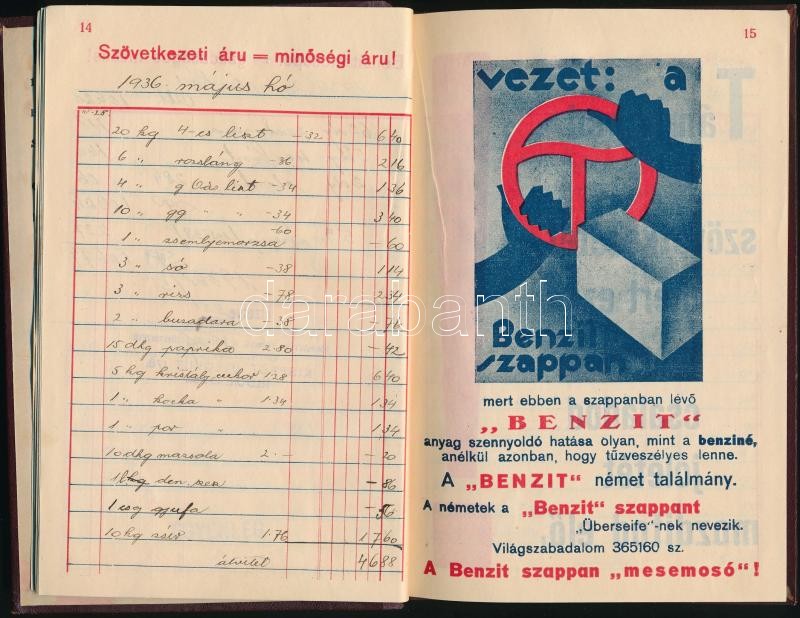 14
Szövetkezeti áru = minőségi áru!
1936. május hó
20 kg 4-es liszt -32 6 40
6 " rozsláng -36 2 16
4 " g Oás liszt -34 1 36
10 " gg " " -34 3 40
1 " zsemlyemorzsa -60 - 60
3 " só -38 1 14
3 " rizs -78 2 34
2 " buzadara -38 - 76
15 dkg paprika 2.80 - 42
5 kg kristálycukor 1.28 6 40
1 " kocka " 1.34 1 34
1 " por " 1 34
10 dkg mazsola 2.- - 20
den. szesz - 86
1 csg gyufa
10 kg zsír 1.76 17 60
átvitel 46 88
15
vezet: a
Benzit
szappan
mert ebben a szappanban lévő
„BENZIT"
anyag szennyoldó hatása olyan, mint a benziné,
anélkül azonban, hogy tűzveszélyes lenne.
A „BENZIT" német találmány.
A németek a „Benzit" szappant
„Überseife"-nek nevezik.
Világszabadalom 365160 sz.
A Benzit szappan „mesemosó"!
darabanth